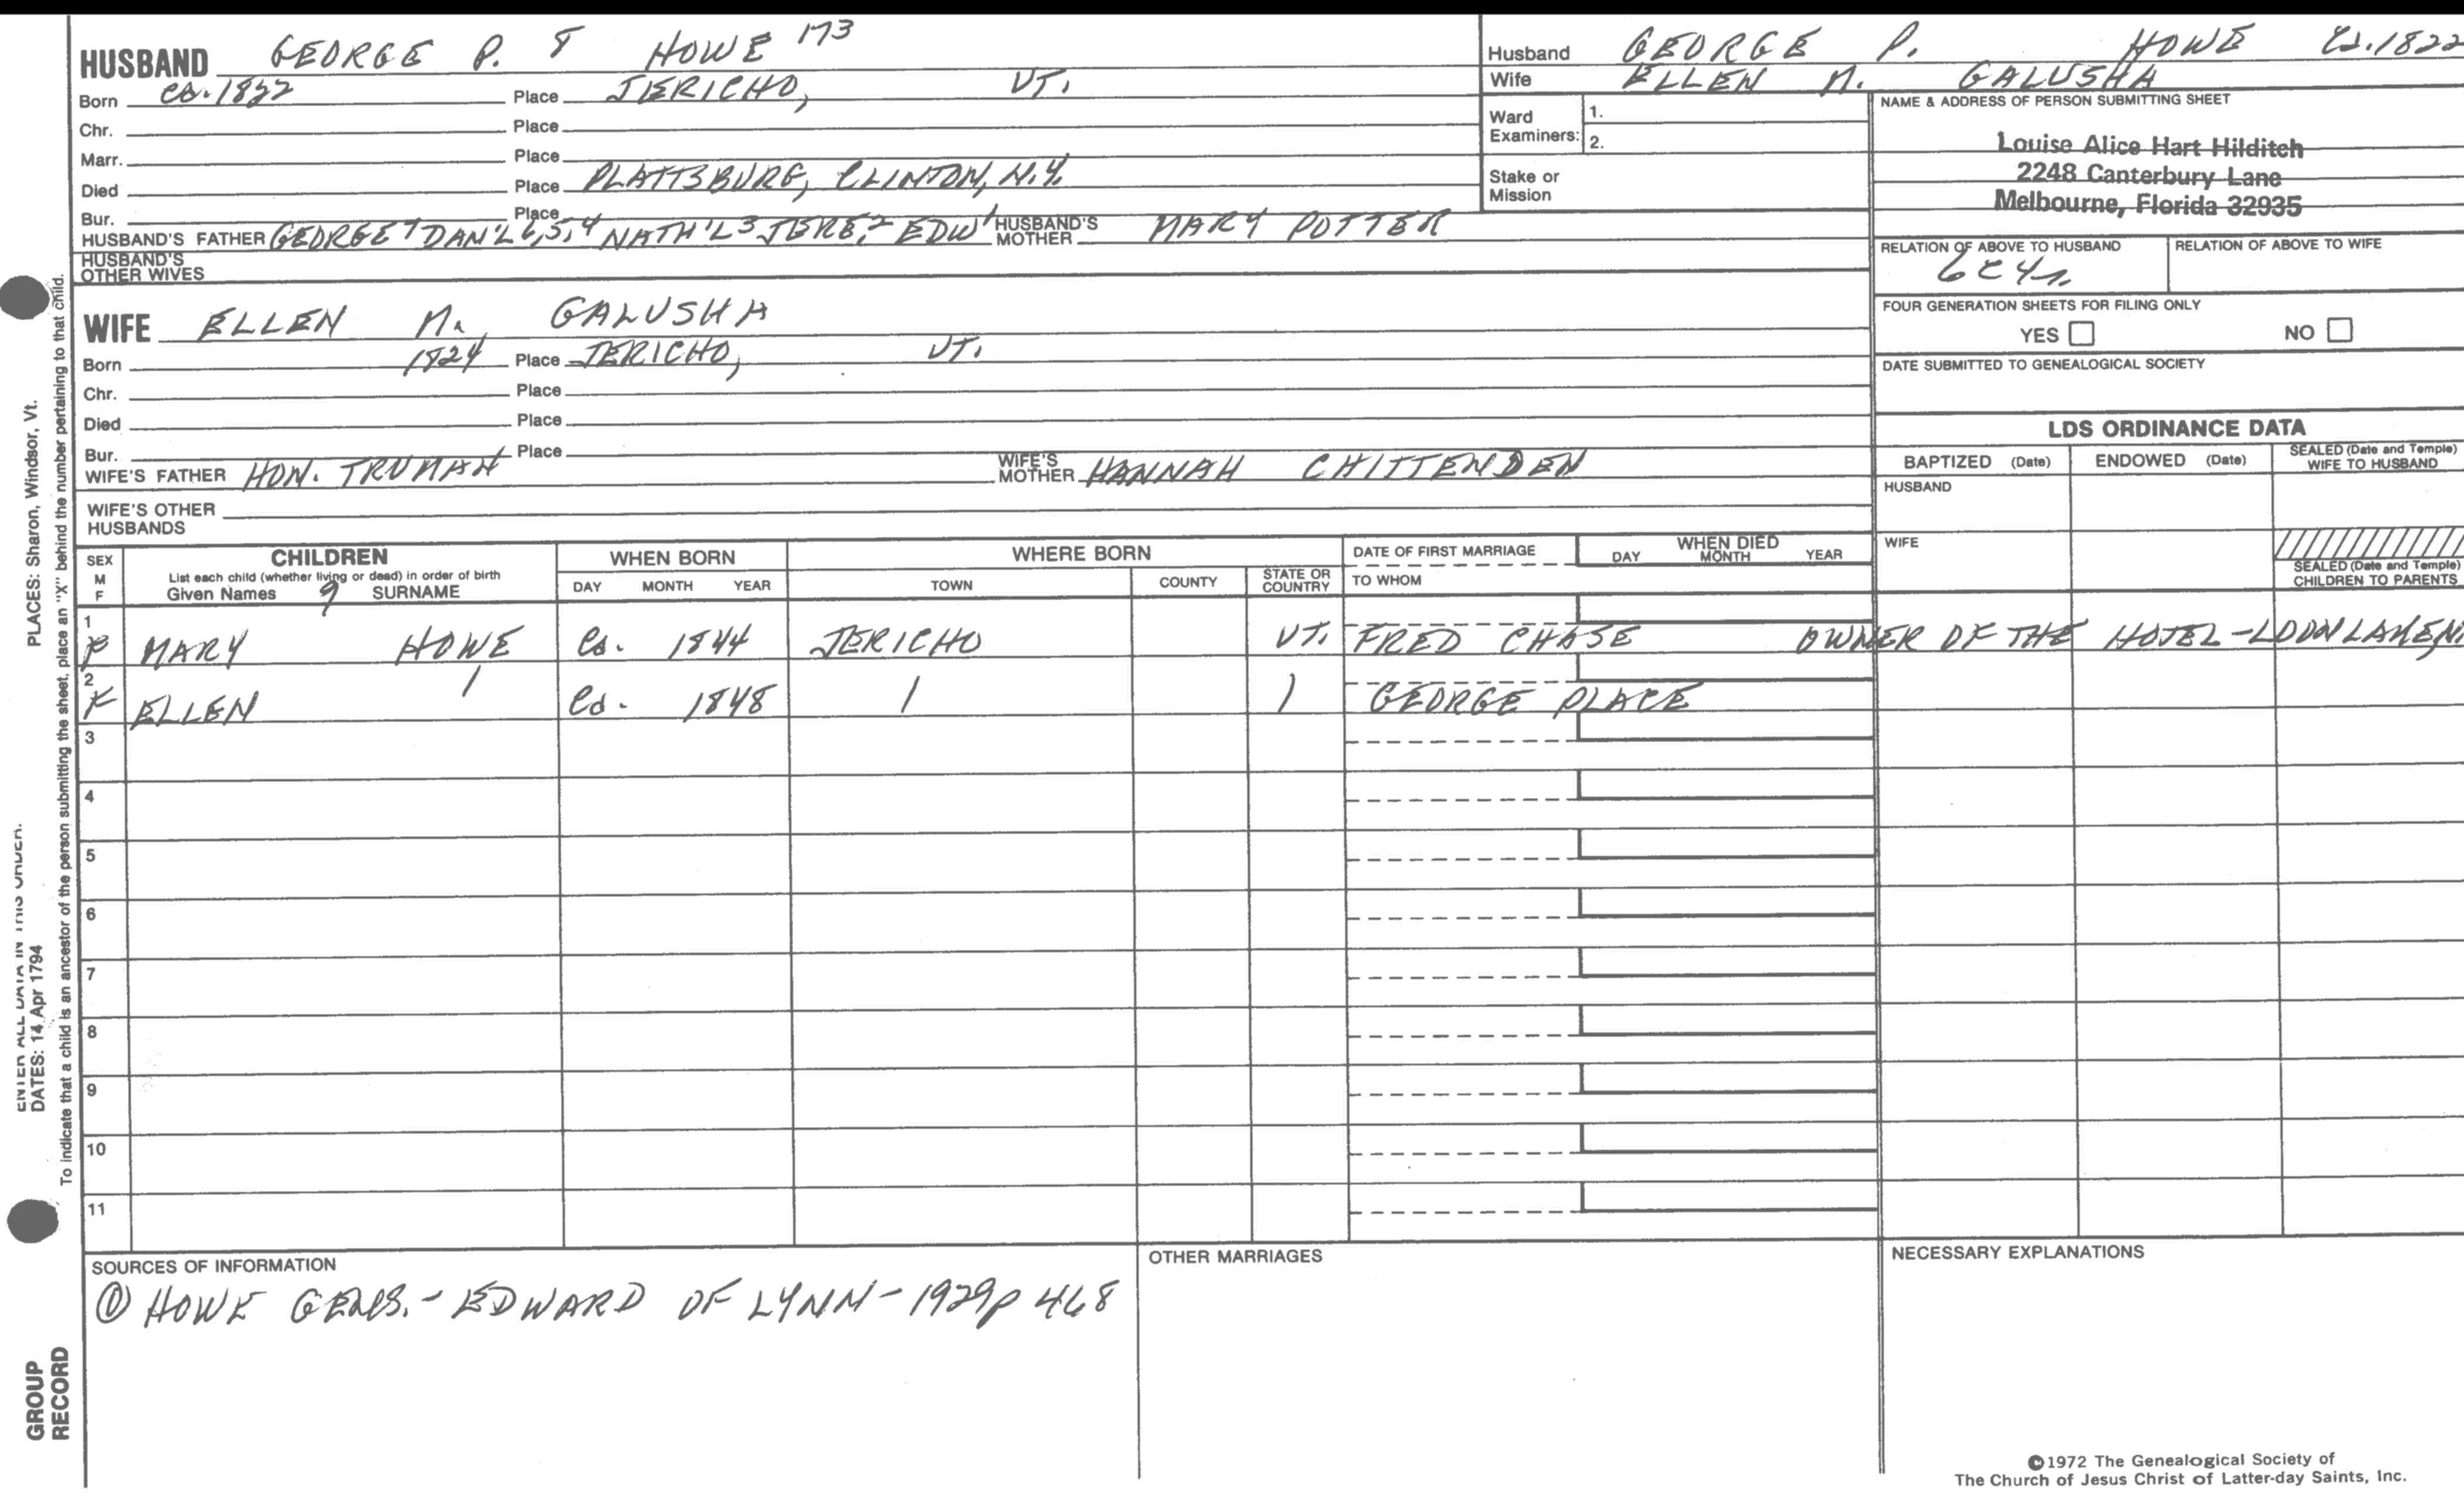 HUSBAND GEORGE P. 8 HOWE 173
Born ca. 1822 Place JERICHO, VT.
Chr. Place
Marr. Place
Died Place PLATTSBURG, CLINTON, N.Y.
Bur. Place
HUSBAND'S FATHER GEORGE 7 DAN'L 6,5,4 NATH'L 3 JERE. 2 EDW 1 HUSBAND'S MOTHER MARY POTTER
HUSBAND'S OTHER WIVES
WIFE ELLEN M. GALUSHA
Born 1824 Place JERICHO, VT.
Chr. Place
Died Place
Bur. Place
WIFE'S FATHER HON. TRUMAN WIFE'S MOTHER HANNAH CHITTENDEN
WIFE'S OTHER HUSBANDS
Husband GEORGE P. HOWE ca. 1822
Wife ELLEN M. GALUSHA
Ward Examiners: 1.
2.
Stake or Mission
NAME & ADDRESS OF PERSON SUBMITTING SHEET
Louise Alice Hart Hilditch
2248 Canterbury Lane
Melbourne, Florida 32935
RELATION OF ABOVE TO HUSBAND RELATION OF ABOVE TO WIFE
6C4r.
FOUR GENERATION SHEETS FOR FILING ONLY
YES NO
DATE SUBMITTED TO GENEALOGICAL SOCIETY
LDS ORDINANCE DATA
BAPTIZED (Date) ENDOWED (Date) SEALED (Date and Temple) WIFE TO HUSBAND
HUSBAND
WIFE
SEALED (Date and Temple) CHILDREN TO PARENTS
SEX M F CHILDREN WHEN BORN WHERE BORN DATE OF FIRST MARRIAGE WHEN DIED
List each child (whether living or dead) in order of birth
Given Names 9 SURNAME DAY MONTH YEAR TOWN COUNTY STATE OR COUNTRY TO WHOM DAY MONTH YEAR
1 F MARY HOWE Ca. 1844 JERICHO VT. FRED CHASE OWNER OF THE HOTEL-LOON LAKE, N.
2 F ELLEN | Ca. 1848 | | GEORGE PLACE
3
4
5
6
7
8
9
10
11
SOURCES OF INFORMATION OTHER MARRIAGES NECESSARY EXPLANATIONS
① HOWE GENLS. - EDWARD OF LYNN - 1929 p 468
©1972 The Genealogical Society of
The Church of Jesus Christ of Latter-day Saints, Inc.
To indicate that a child is an ancestor of the person submitting the sheet, place an "X" behind the number pertaining to that child.
PLACES: Sharon, Windsor, Vt.
ENTER ALL DATA IN THIS ORDER:
DATES: 14 Apr 1794
GROUP
RECORD